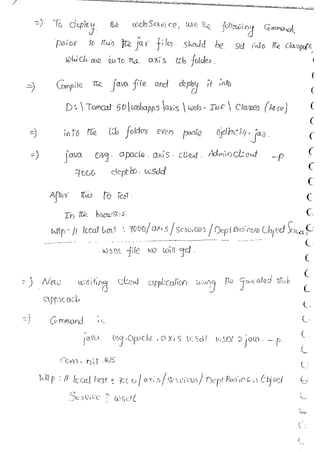 =) To deploy the webService, use the following Command,
prior to this the jar files should be set into the Classpath,
which are into the axis lib folder.
=) Compile the java file and deploy it into
D:\Tomcat 50\webapps\axis\web-INF\Classes (Here)
=) into the lib folder even paste ojdbc14.jar.
=) java org.apache.axis.client.AdminClient -p
7000 deptbo.wsdd
After this to Test.
In the browser.
http://localhost:7000/axis/services/DeptBusiness Object Service
.wsdl file we will get.
=) Now writing client application using the Generated stub
approach
=) Command is
java org.apache.axis.wsdl.wsdl2java. -p
com.nit.ws
http://localhost: /axis/services/DeptBusiness Object
Service?wsdl